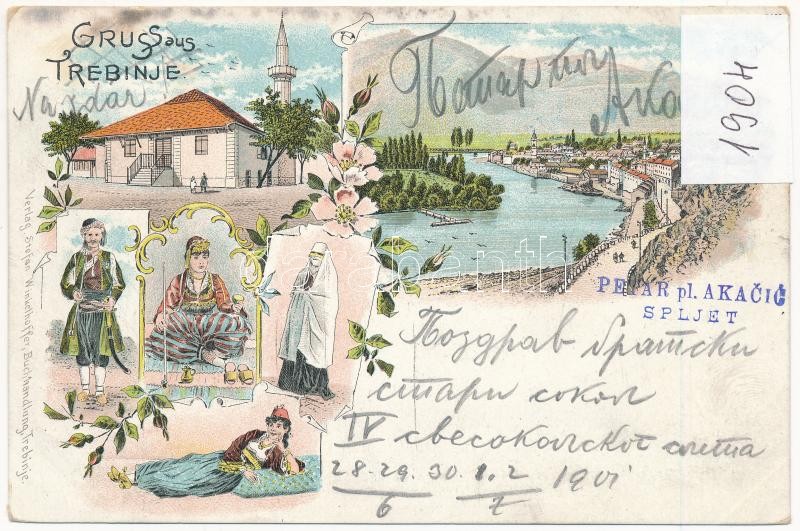 GRUSS aus
TREBINJE
Na zdar!
Петар пл
Ака
1904
Verlag Stefan Winkelhoffer, Buchhandlung, Trebinje.
PETAR pl. AKAČIĆ
SPLJET
Поздрав братски
стари сокол
IV свесоколског слета
28. 29. 30. 1. 2 1901
6 7